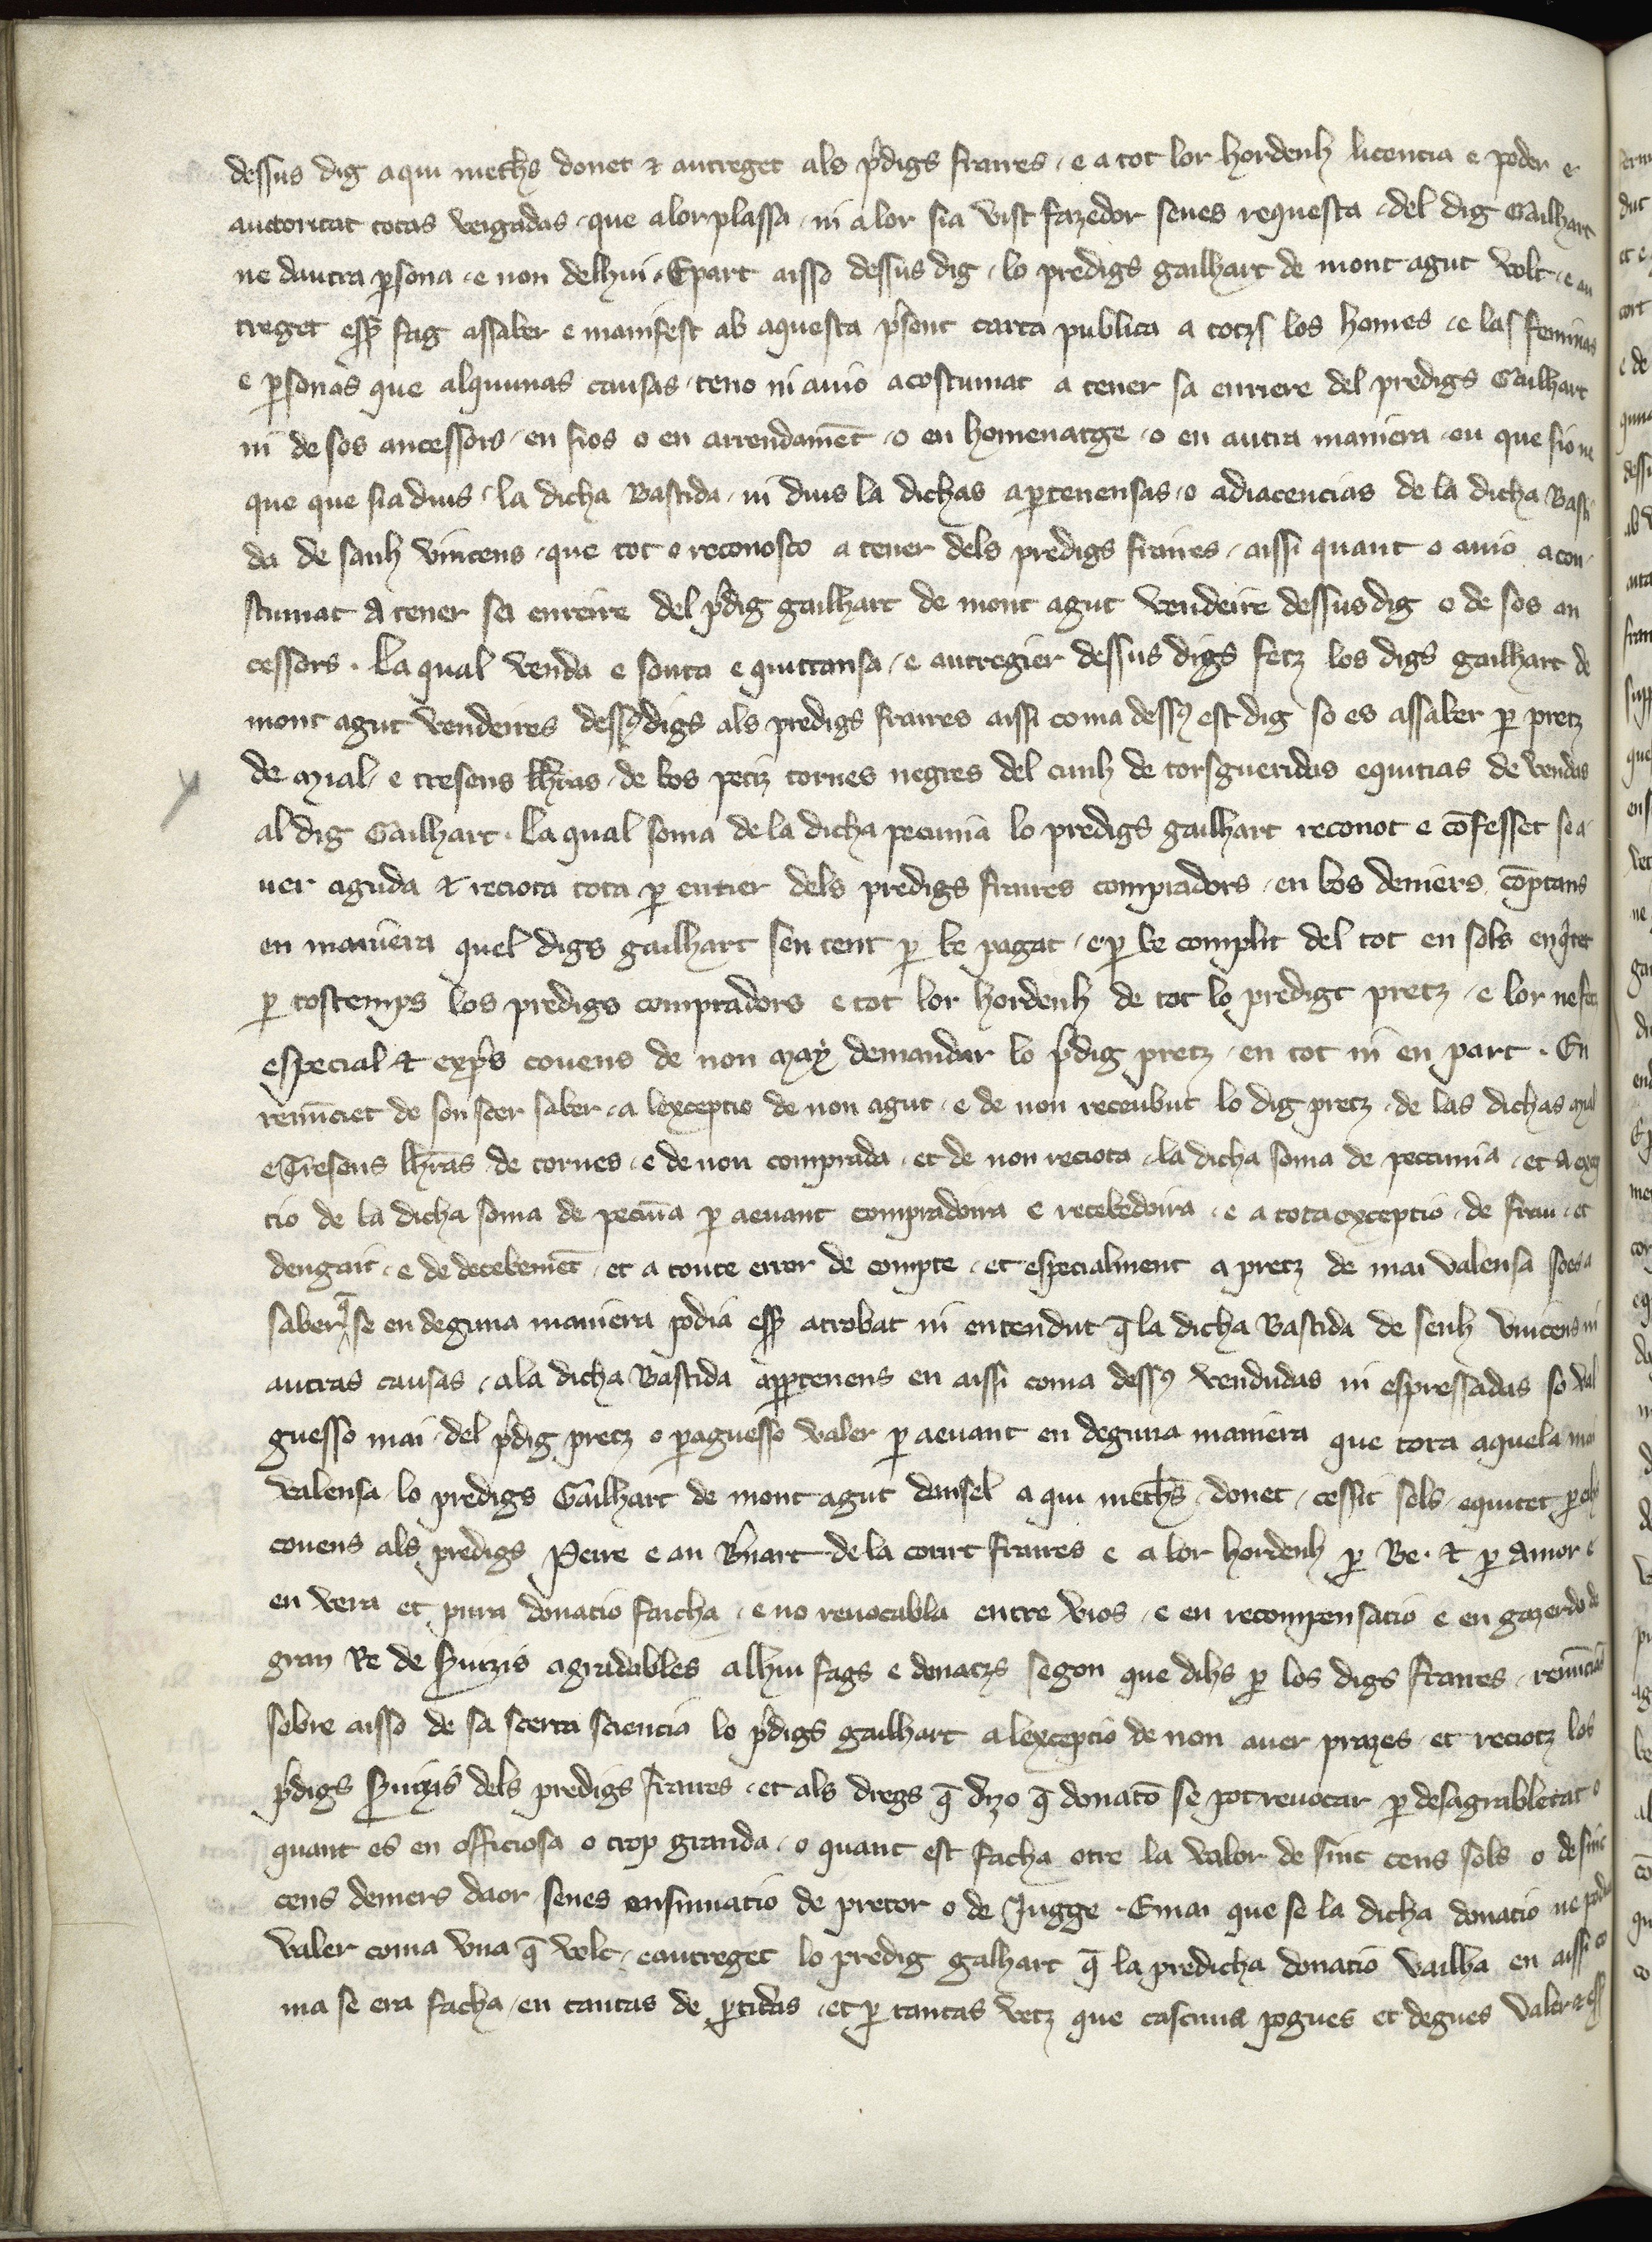 dessus dig aqui meths donet & autreget als p̄digs fraires · e a tot lor hordenh licencia e poder e
auctoritat totas veigadas · que a lor plassa · ni a lor sia vist fazedor senes requesta · del dig Gailhart
ne dautra ꝑsona · e non delhui · E part aisso dessus dig · lo predigs gailhart de mont agut volt · e au
treget esꝭ fag assaber e manifest ab aquesta p̄sent carta publica a totzs los homes · e las feminas
e ꝑsonas que alqunas causas · teno ni auio acostumat a tener sa enriere del predigs Gailhart
ni de sos ancessors · en fios o en arrendamēt · o en homenatge · o en autra maniera · on que sio ne
que que sia dins · la dicha Bastida · ni dins la dichas aꝑtenensas · o adiacencias de la dicha Basti
da de sanh vincens · que tot o reconosco a tener dels predigs fraires · aissi quant o auio acou
stumat a tener sa enreire del p̄dig gailhart de mont agut vendeire dessus dig o de sos an
cessors · La qual venda e souta e quittansa · e autregier dessus digs fetz los digs gailhart de
mont agut vendeires dessꝰ digs als predigs fraires aissi coma dessꝰ est dig so es assaber ꝑ pretz
de mial · e tresens lhras · de bos petiz tornes negres del cunh de tors gueridas e quitias de vendas
al dig Gailhart · La qual soma de la dicha pecunia lo predigs gailhart reconot e cōfesset se a
uer aguda & reciota tota ꝑ entier dels predigs fraires compradors · en bos deniers cōptans
en maniera quel digs gailhart sen tent ꝑ be pagat · e ꝑ be complit del tot en sols enq̄tet
ꝑ tostemps los predigs compradors e tot lor hordenh de tot lo predigt pretz · e lor ne fetz
especial & exp̄s couens de non may demandar lo p̄dig pretz · en tot ni en part · En
renūciet de son scer saber · a lexceptio de non agut · e de non receubut lo dig pretz · de las dichas mial
e Tresens lhras de tornes · e de non comprada · et de non reciota · la dicha soma de peccunia · et a excep
tio de la dicha soma de pecūia ꝑ aeuant compradoira e recebedoira · e a tota exceptio · de frau · et
dengait · e de decebemēt · et a toute error de compte · et especialment a pretz de mai valensa so es a
saber q̄ se en deguna maniera podia esꝭ atrobat ni entendut q̄ la dicha Bastida de senh vincens ni
autras causas · a la dicha Bastida apꝑtenens en aissi coma dessꝰ vendudas ni espressadas so val
guesso mai · del p̄dig pretz o ꝑaguesso valer ꝑ aeuant en deguna maniera que tota aquela mai
valensa lo predigs Gailhart de mont agut dansel a qui meths · donet · cessit sols · e quitet ꝑ
couens als predigs Peire e an B̄nart de la cort fraires e a lor hordenh ꝑ Be · & ꝑ Amor e
en vera et pura donatio faicha · e no reuocabla entre vios · e en recompensatio e en gazerdo de
gran Re de s̄uizis agradables a lhui fags e donatzs segon que dihs ꝑ los digs fraires · renūciāt
sobre aisso de sa scerta sciencia lo p̄digs gailhart a lexceptio de non auer prazes · et reciotz los
p̄digs s̄uizis dels predigs fraires · et als dregs q̄ dizo q̄ donatō se pot reuocar ꝑ desagrabletat o
quant es en officiosa o trop granda · o quant est facha otre la valor de sinc cens sols o de sinc
cens deniers daor senes ensinuatio de pretor o de Jugge · E mai que se la dicha donatio ne podia
valer coma vna q̄ volt · e autreget lo predig galhart q̄ la predicha donatio vailha en aissi co
ma se era facha · en tantas de ꝑtidas · et ꝑ tantas vetz que cascuna pogues et degues valer & esꝭ